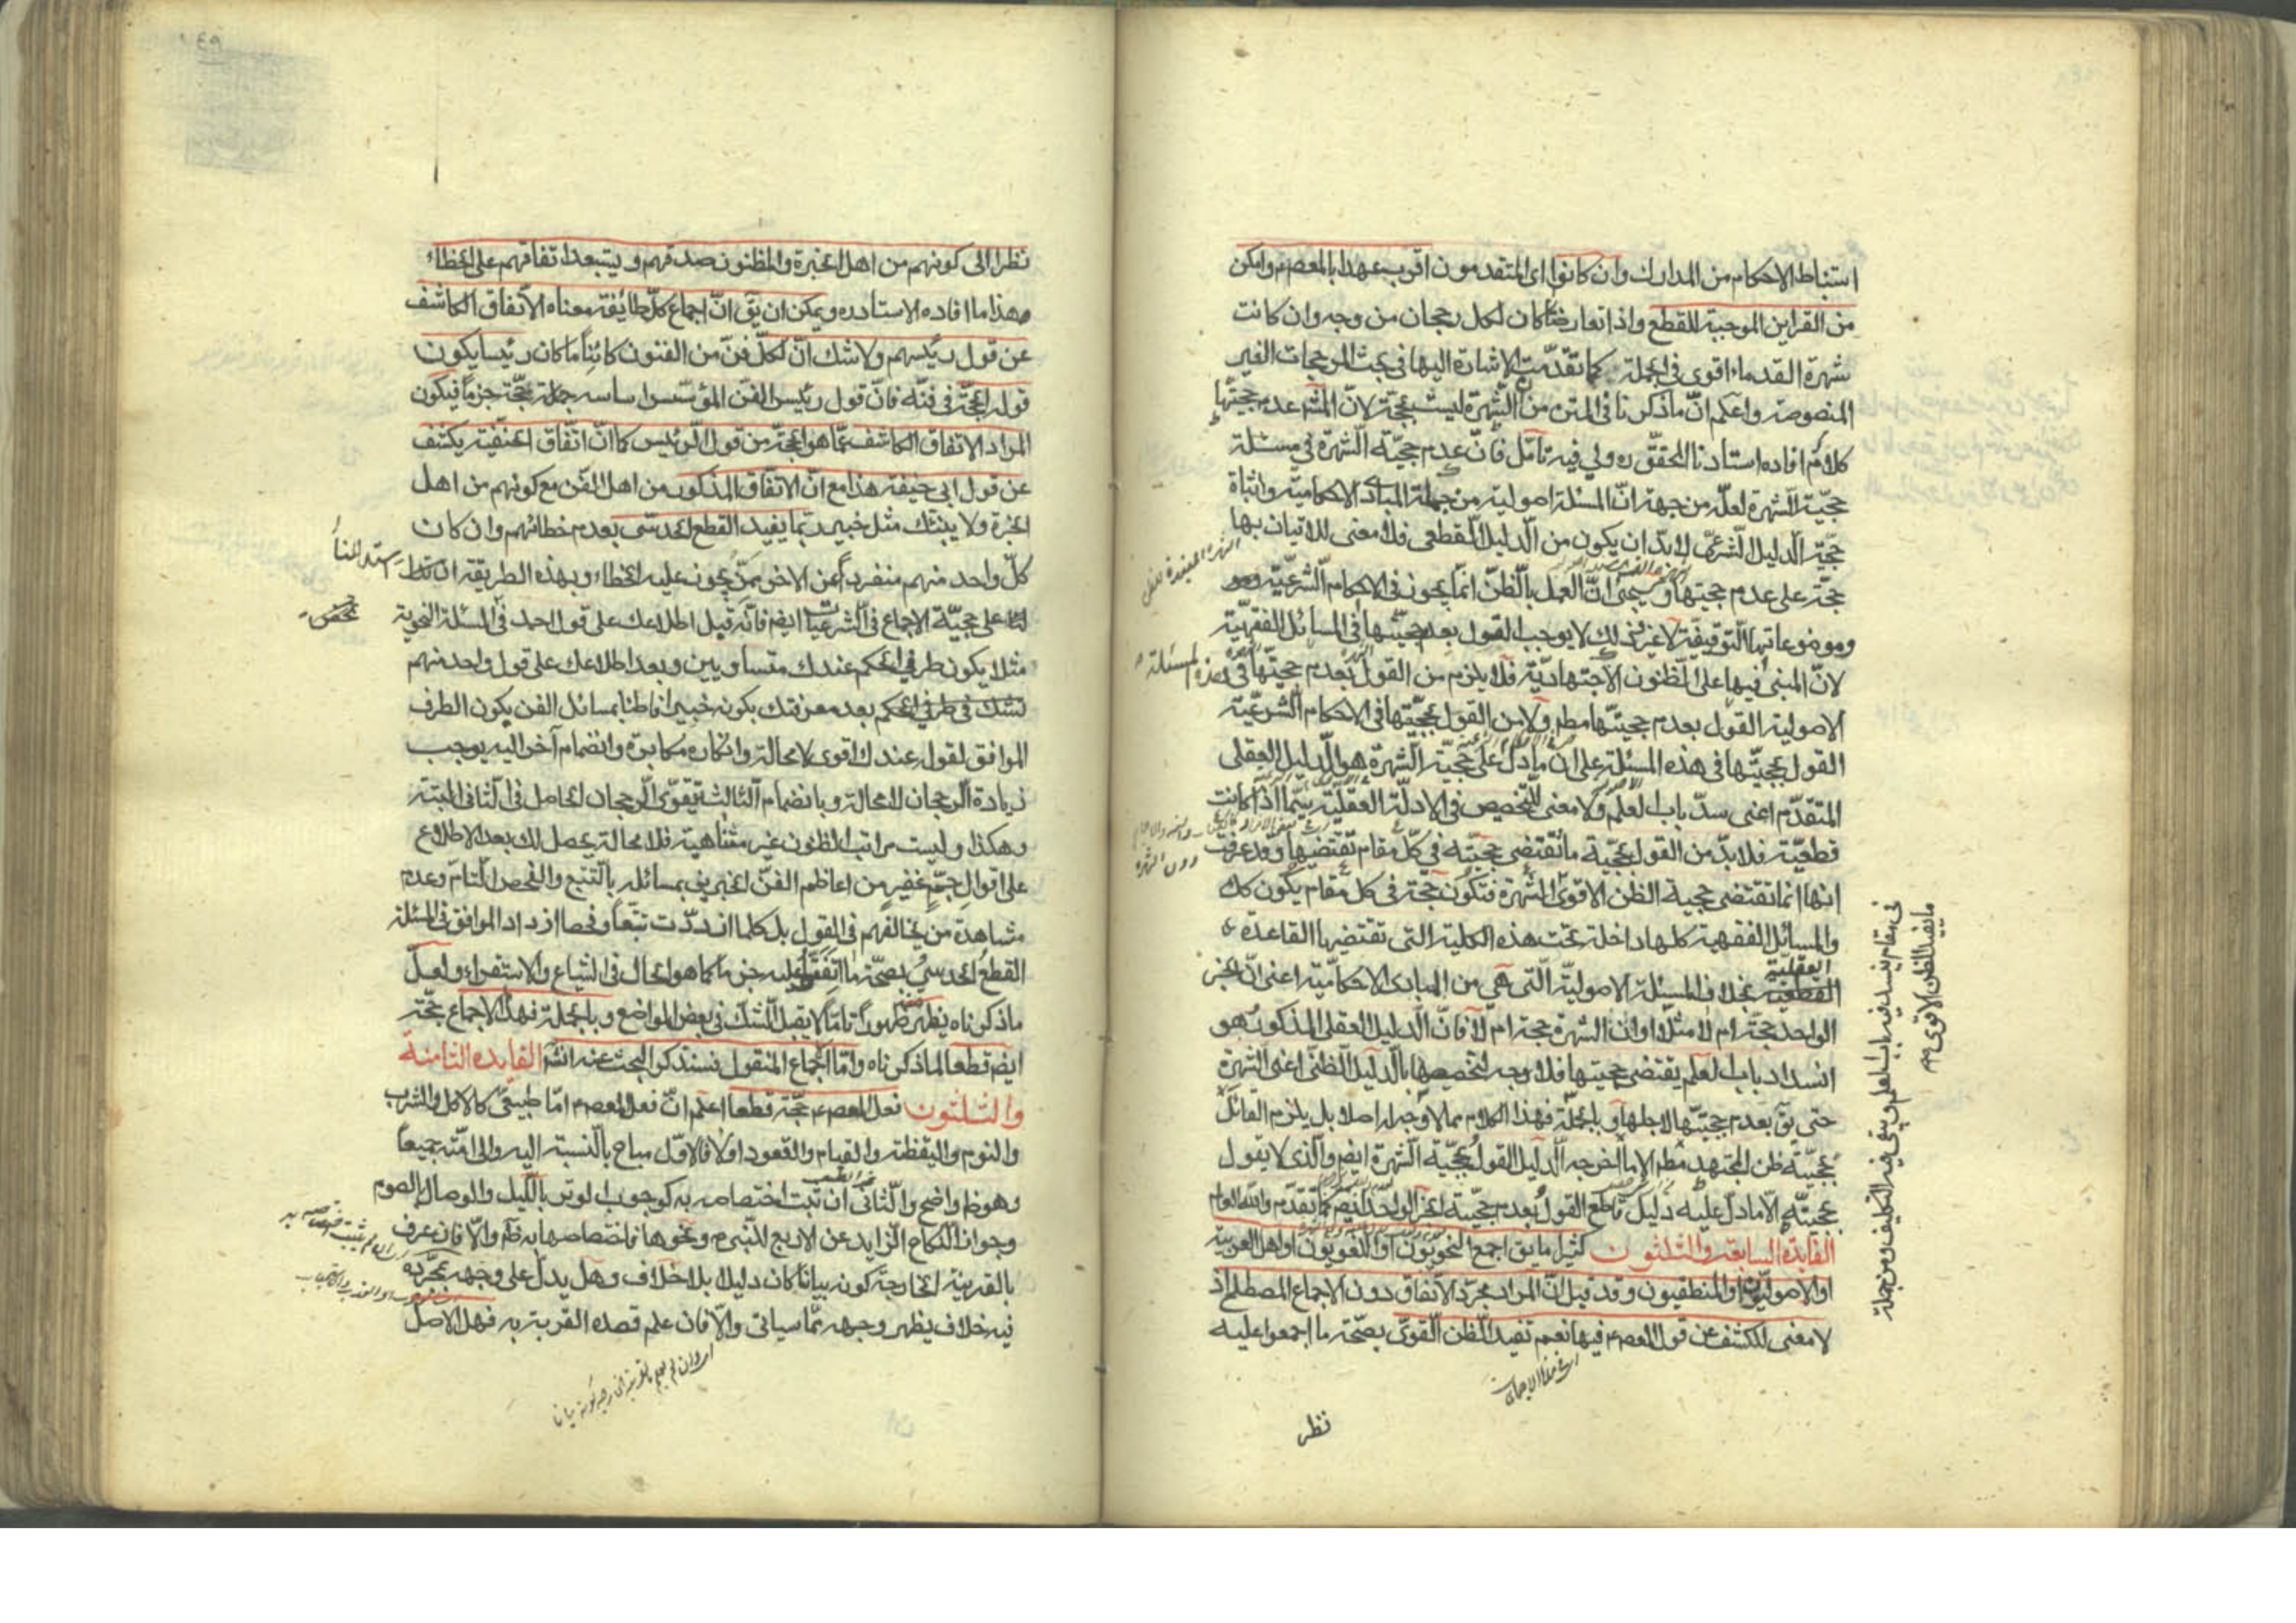 استنباط الاحكام من المدارك وان كانوا اى المتقدمون اقرب عهدا بالمعصومم وامكن
من القراين الموجبة للقطع واذا تعارضتا كان لكل رجحان من وجه وان كانت
شهرة القدماء اقوى فى الجملة كما تقدمت الاشارة اليها فى بحث المرجحات الغير
المنصوصة واعلم انّ ما ذكرنا فى المتن من انّ الشهرة ليست بحجّة لانّ المشهور عدم حجيتها
كلام افاده استادنا المحقق ره ولي فيه تأمّل فانّ عدم حجيّة الشهرة فى مسئلة
حجيّة الشهرة لعلّه من جهة انّ المسئلة اصولية من جملة المبادى الاحكامية واثباة
حجيّة الدليل الشرعىّ لابدّ ان يكون من الدليل القطعى فلا معنى للاتيان بها
حجّة على عدم حجيتها وسيجئ انّ العمل بالظنّ انّما يجوز فى الاحكام الشرعيّة
وموضوعاتها التوقيفية لا غير فذلك لا يوجب القول بعدم حجيّتها فى المسائل الفقهيّة
لانّ المبنى فيها على الظنون الاجتهاديّة فلا يلزم من القول بعدم حجيّتها فى هذه المسئلة
الاصولية القول بعدم حجيّتها مطم ولا من القول بحجيّتها فى الاحكام الشرعيّة
القول بحجيّتها فى هذه المسئلة على ان ما دلّ على حجيّة الشهرة هو الدليل العقلى
المتقدّم اعنى سدّ باب العلم ولا معنى للتخصيص فى الادلّة العقليّة سيّما اذا كانت
قطعيّة فلابدّ من القول بحجيّة ما تقتضى حجيّته فى كلّ مقام تقتضيها وقد عرفت
انها انما تقتضى حجية الظن الاقوى الشهرة فتكون حجّة فى كل مقام يكون كك
والمسائل الفقهية كلها داخلة تحت هذه الكلية التى تقتضيها القاعدة
العقلية
القطعية بخلاف المسئلة الاصوليّة الّتى هى من المبادى الاحكاميّة اعنى انّ الخبر
الواحد حجّة ام لا مثلا او انّ الشهرة حجة ام لا فانّ الدليل العقلى المذكور هو
انسداد باب العلم يقتضى حجيتها فلا وجه لتخصيصها بالدليل الظنّى اعنى الشهرة
حتى يق بعدم حجيّتها لاجلها وبالجملة فهذا الكلام مما لا وجه له اصلا بل يلزم القائل
بحجيّة ظن المجتهد مطم الا ما اخرجه الدليل القول بحجيّة الشهرة ايضم والّذى لا يقول
بحجيّته الّا ما دلّ عليه دليل قاطع القول بعدم حجيّة الخبر الواحد ايضم كما تقدّم والله العالم
الفايدة السابعة والثلثون كثيرا ما يق اجمع النحويّون او اللغويّون او اهل العربية
او الاصوليّون او المنطقيون وقد قيل انّ المراد مجرّد الاتّفاق دون الاجماع المصطلح اذ
لا معنى للكشف عن قول المعصوم فيها نعم تفيد الظن القوىّ بصحّة ما اجمعوا عليه
نظر
فى مقام ينسد فيه باب العلم ويبقى فيه التكليف ومن جملة
ما يفيد الظن الاقوى
نظرا الى كونهم من اهل الخبرة والمظنون صدقهم ويستبعد اتفاقهم على الخطاء
هذا ما افاده الاستاد ره ويمكن ان يق انّ اجماع كلّ طائفة معناه الاتّفاق الكاشف
عن قول رئيسهم ولا شك انّ لكلّ فنّ من الفنون كائناً ما كان رئيسا يكون
قوله الحجّة فى فنّه فانّ قول رئيس الفنّ المؤسّس اساسه جملة حجّة جزماً فيكون
المراد الاتفاق الكاشف عمّا هو الحجّة من قول الرئيس كما انّ اتّفاق الحنفيّة يكشف
عن قول ابى حنيفة هذا مع انّ الاتّفاق المذكور من اهل الفن مع كونهم من اهل
الخبرة ولا ينبئك مثل خبير ربّما يفيد القطع الحدسّى بعدم خطائهم وان كان
كلّ واحد منهم منفرداً عن الاخر ممّن يجوز عليه الخطاء وبهذه الطريقة استدللنا
على حجيّة الاجماع فى الشرعيّات ايضم فانّه قبل اطلاعك على قول احد فى المسئلة النحوية
مثلا يكون طرفى الحكم عندك متساويين وبعد اطلاعك على قول واحد منهم
بعد معرفتك بكونه خبيرا فاطنا بمسائل الفن يكون الطرف
الموافق لقوله عندك اقوى لا محالة وانكاره مكابرة وانضمام آخر اليه يوجب
زيادة الرجحان لا محالة وبانضمام الثالث يتقوّى الرجحان الحاصل فى الثانى البتة
وهكذا وليست مراتب الظنون غير متناهية فلا محالة يحصل لك بعد الاطلاع
على اقوال جمّ غفير من اعاظم الفنّ الخبيرين بمسائله بالتتبع والفحص التّام وعدم
مشاهدة من يخالفهم فى القول بل كلما ازددت تتبّعاً وفحصا ازداد الموافق فى المسئلة
القطع الحدسي بصحّة ما اتفقوا عليه جزما كما هو الحال فى الشياع والاستقراء ولعلّ
ما ذكرناه يظهر ظهوراً تامّاً لا يقبل الشكّ فى بعض المواضع وبالجملة فهذا الاجماع حجّة
ايضم قطعا لما ذكرناه وامّا الاجماع المنقول فستذكر البحث عنه انشم الفايدة الثامنة
والثلثون فعل المعصومم حجّة قطعا اعلم انّ فعل المعصومم امّا طبيعىّ كالاكل والشرب
والنوم واليقظة والقيام والقعود اولا فالاوّل مباح بالنسبة اليه والى امّته جميعاً
وهو ظ واضح والثانى ان ثبت اختصاصه به كوجوب الوتر بالليل والوصال بالصوم
وجواز النكاح الزايد عن الاربع للنبىم ونحوها فاختصاصها به ظم والّا فان عرف
بالقرينة الخارجة كونه بيانا كان دليلا بلا خلاف وهل يدلّ على وجهه بمجرّده
فيه خلاف يظهر وجهه ممّا سياتى والّا فان علم قصده القربة به فهل الاصل
اى وان لم يعلم بالقرينة الخارجية كونه بيانا